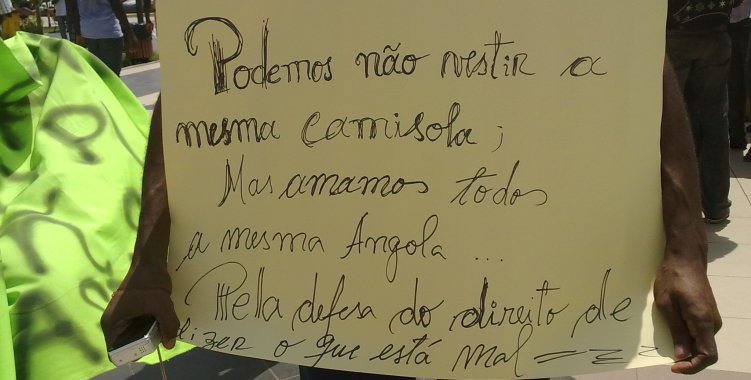 Podemos não vestir a
mesma camisola;
Mas amamos todos
a mesma Angola...
Pella defesa do direito de
dizer o que está mal